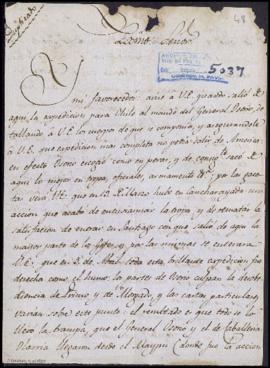 Duplicado
48
Exmo. Señor.
5037
Mi favorecedor: avisé a V.E. quando salió de
aquí la expedicion para Chile al mando del General Osorio, de
tallando a V.E. los cuerpos de que se componia, y asegurandole
a V.E. que expedicion mas completa no podia salir de America:
en efecto Osorio escogió como en peras, y de
aquí lo mejor en tropa, oficiales, armamento &a: por las gacetas
vera V.E. que en 19 Marzo hubo en Cancharayada una
accion que acabó de entusiasmar la tropa, y de rematar la
satisfaccion de entrar en Santiago con que salió de aquí la
mayor parte de los Gefes, y por las mismas se enterará
V.E. que en 5 de Abril toda esta brillante expedicion fue
desecha como el humo: los partes de Osorio culpan de desobe
diencia de Primo y de Morgado, y las cartas particulares
varian sobre este punto: el resultado es que todo se lo
llevó la trampa, que el General Osorio y el de Caballeria
Olarria llegaron desde el Maypú (donde fue la accion